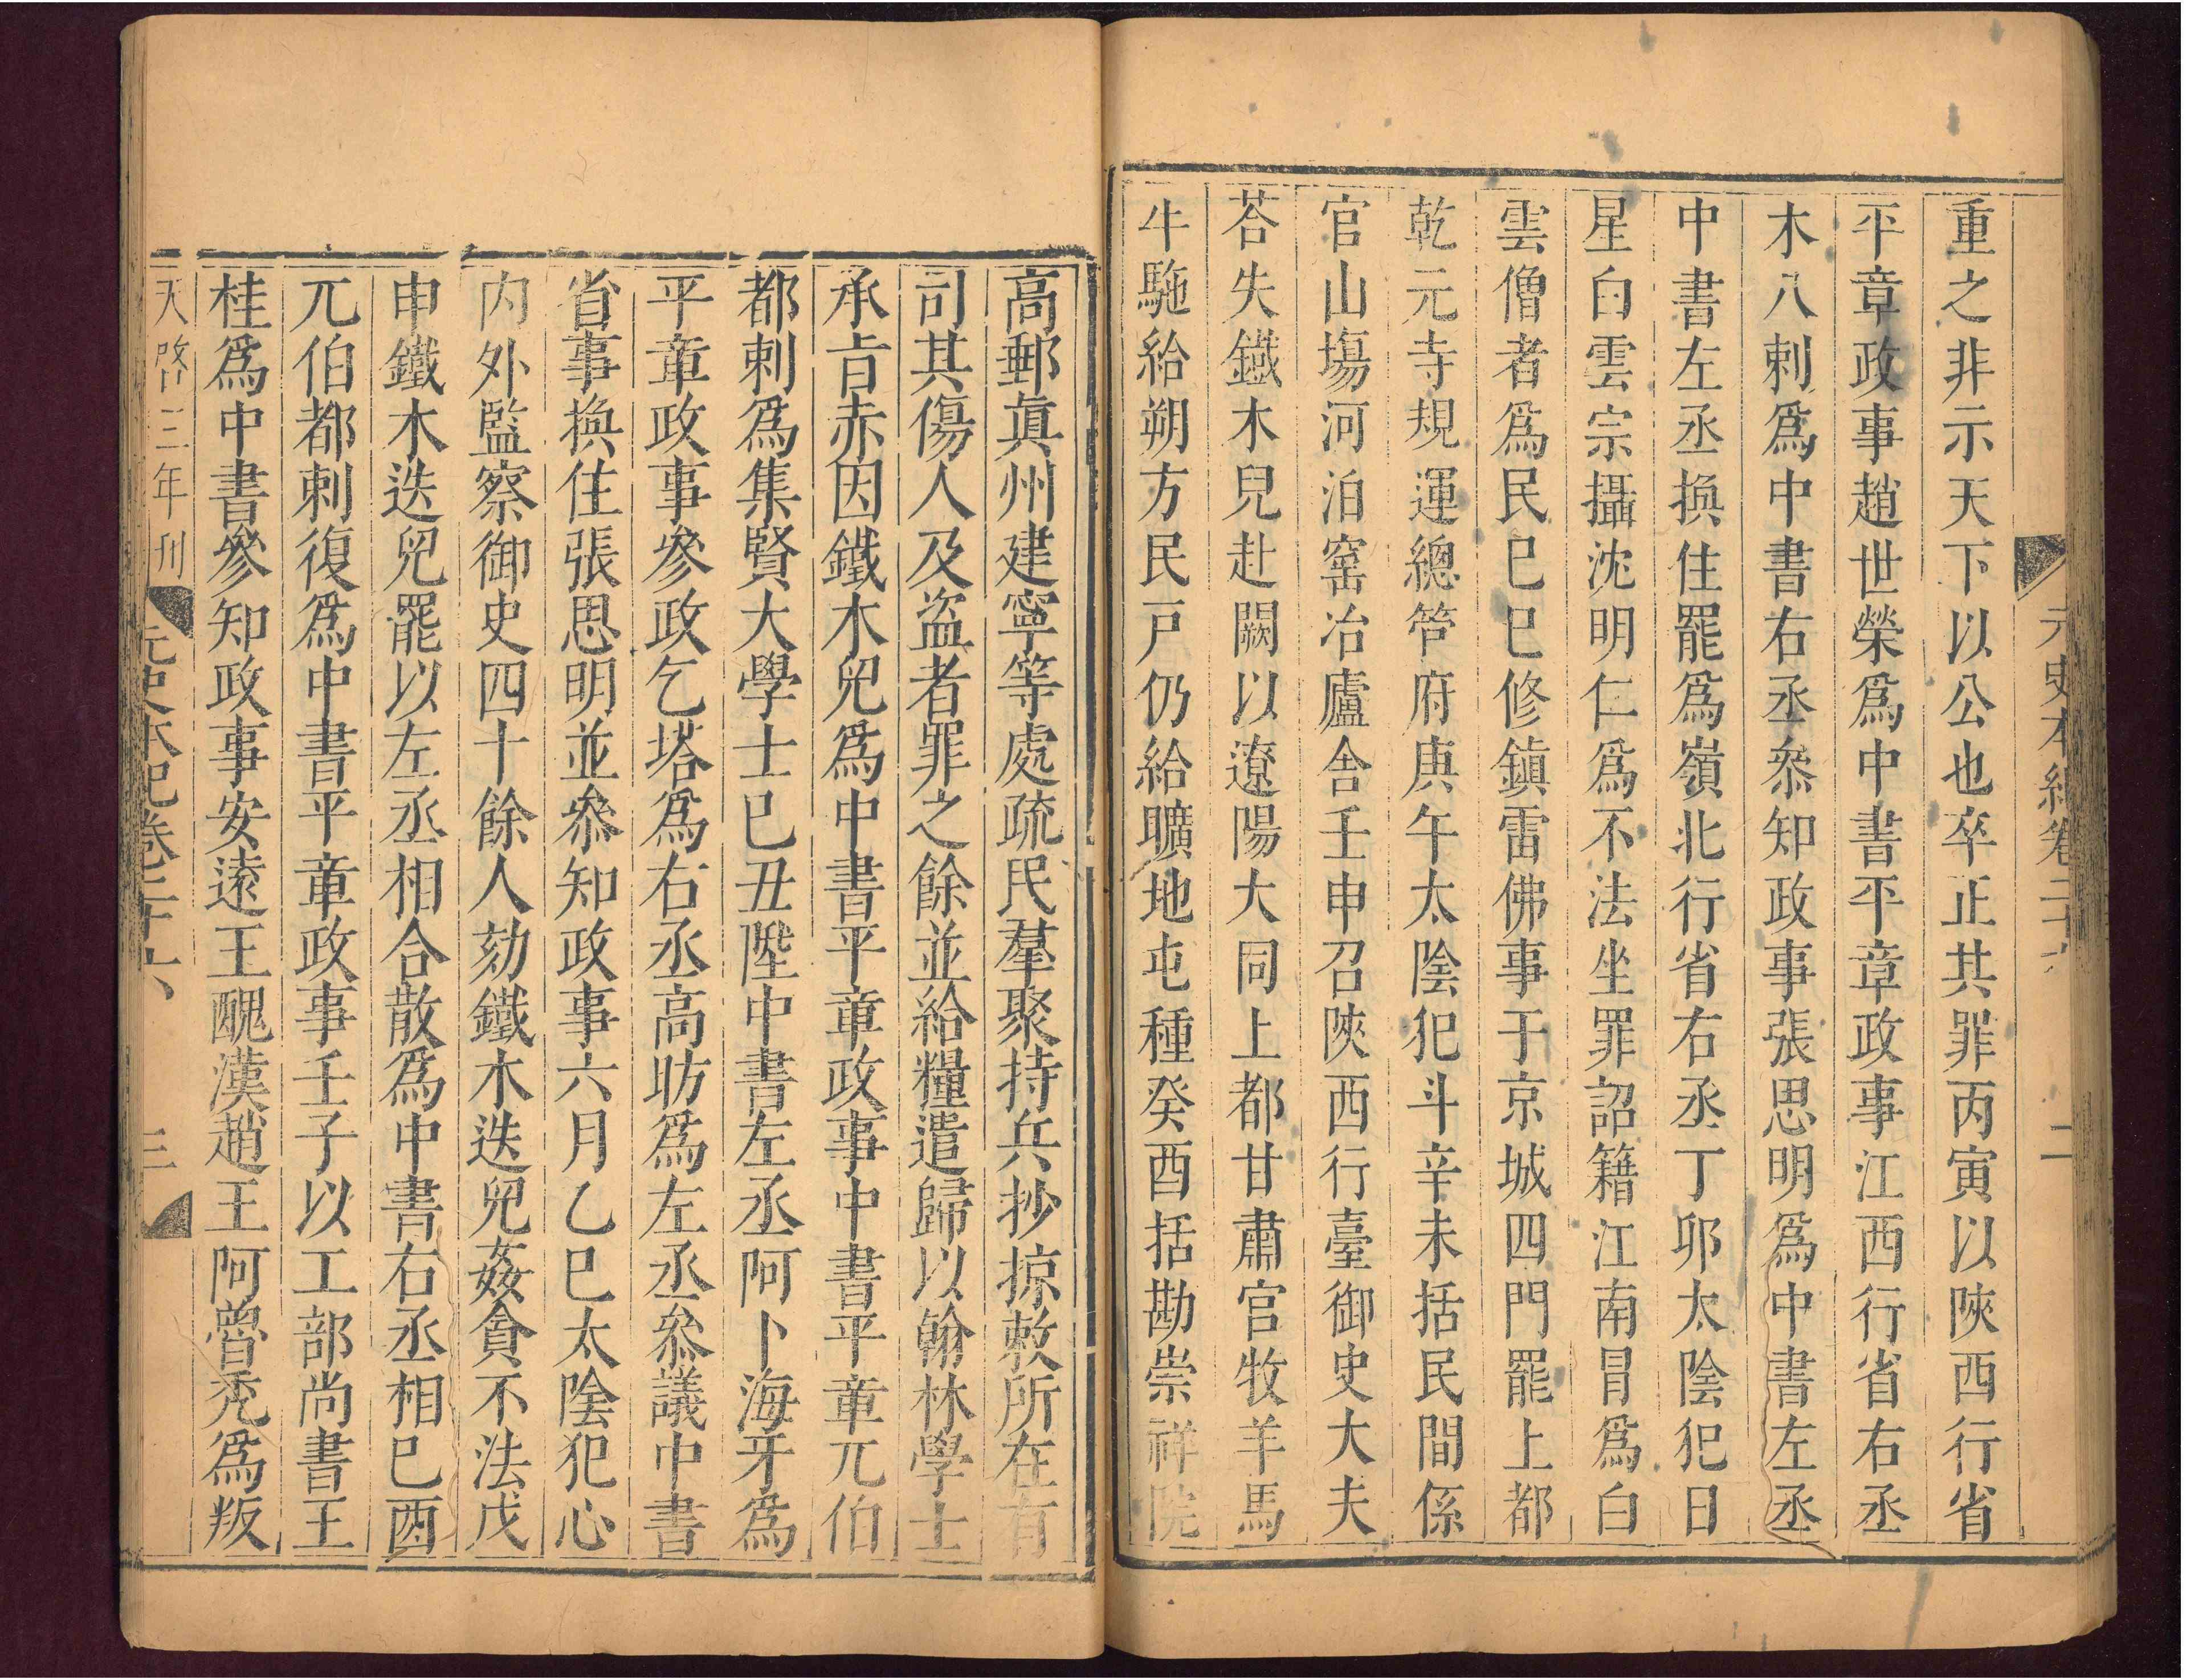 元史本紀卷二十六
二
重之非示天下以公也卒正其罪丙寅以陝西行省
平章政事趙世榮爲中書平章政事江西行省右丞
木八剌爲中書右丞叅知政事張思明爲中書左丞
中書左丞換住罷爲嶺北行省右丞丁卯太陰犯日
星白雲宗攝沈明仁爲不法坐罪詔籍江南冒爲白
雲僧者爲民己巳修鎮雷佛事于京城四門罷上都
乾元寺規運總管府庚午太陰犯斗辛未括民間係
官山塲河泊窑冶廬舎壬申召陝西行臺御史大夫
荅失鐵木兒赴闕以遼陽大同上都甘肅官牧羊馬
牛駞給朔方民戸仍給曠地屯種癸酉括勘崇祥院
高郵眞州建寧等處疏民羣聚持兵抄掠敕所在有
司其傷人及盜者罪之餘並給糧遣歸以翰林學士
承旨赤因鐵木兒爲中書平章政事中書平章兀伯
都剌爲集賢大學士己丑陞中書左丞阿卜海牙爲
平章政事參政乞塔爲右丞高昉爲左丞叅議中書
省事換住張思明並叅知政事六月乙巳太陰犯心
内外監察御史四十餘人劾鐵木迭兒姦貪不法戊
申鐵木迭兒罷以左丞相合散爲中書右丞相己酉
兀伯都剌復爲中書平章政事壬子以工部尚書王
桂爲中書參知政事安遠王醜漢趙王阿魯禿爲叛
天啓三年刊
元史本紀卷二十六
三